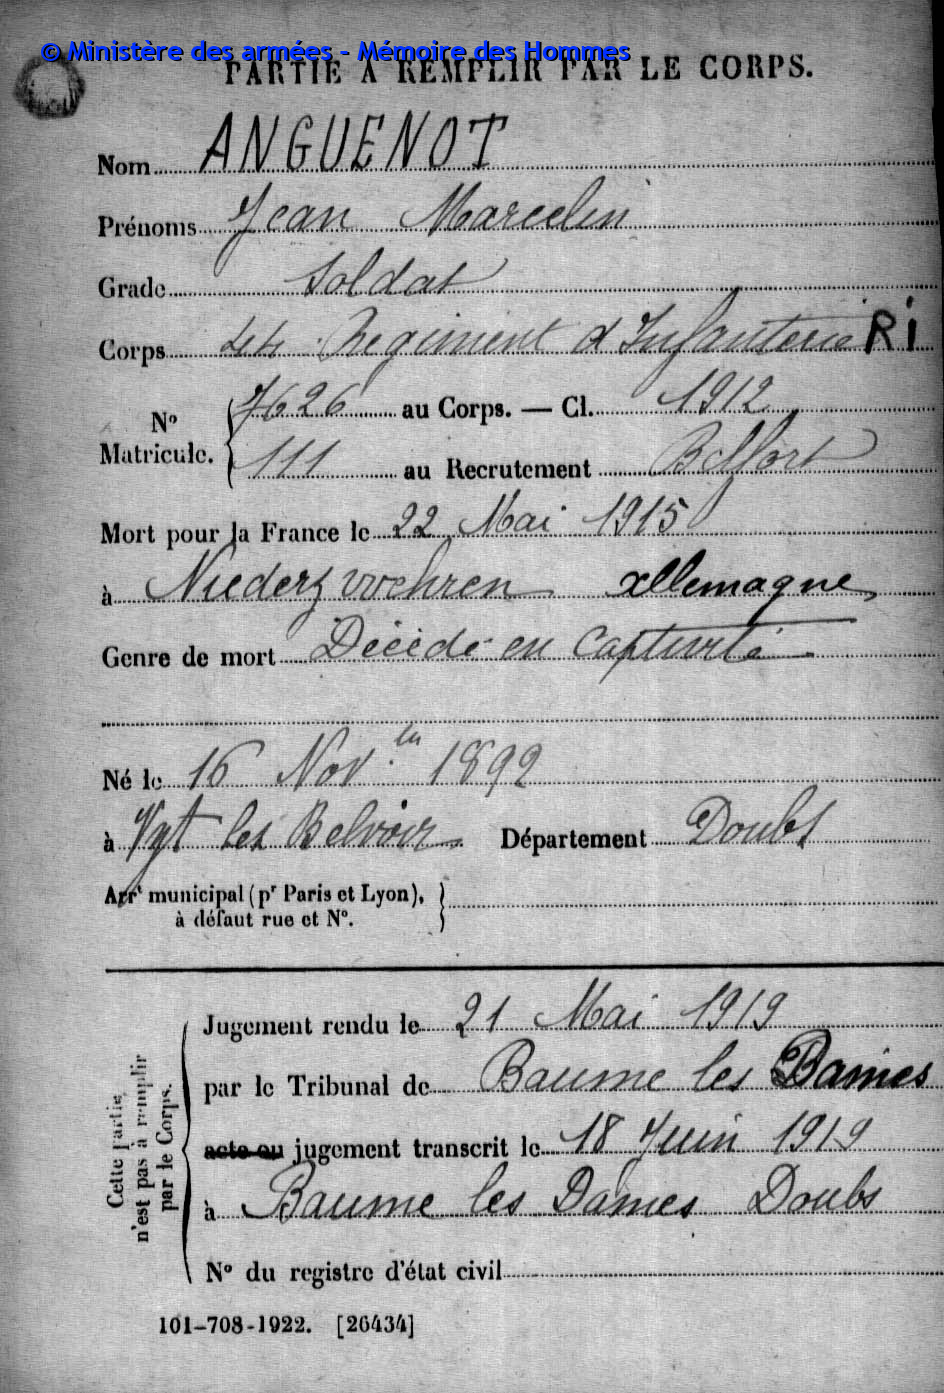 © Ministère des armées - Mémoire des Hommes
PARTIE A REMPLIR PAR LE CORPS.
Nom ANGUENOT
Prénoms Jean Marcelin
Grade Soldat
Corps 44 Regiment d'Infanterie RI
Nº Matricule. 7626 au Corps. — Cl. 1912
111 au Recrutement Belfort
Mort pour la France le 22 Mai 1915
à Niederzwehren Allemagne
Genre de mort Décédé en Captivité
Né le 16 Nov.bre 1892
à Vyt les Belvoir Département Doubs
Arrt municipal (pr Paris et Lyon),
à défaut rue et Nº.
Cette partie
n'est pas à remplir
par le Corps.
Jugement rendu le 21 Mai 1919
par le Tribunal de Baume les Dames
acte ou jugement transcrit le 18 Juin 1919
à Baume les Dames Doubs
Nº du registre d'état civil
101-708-1922. [26434]